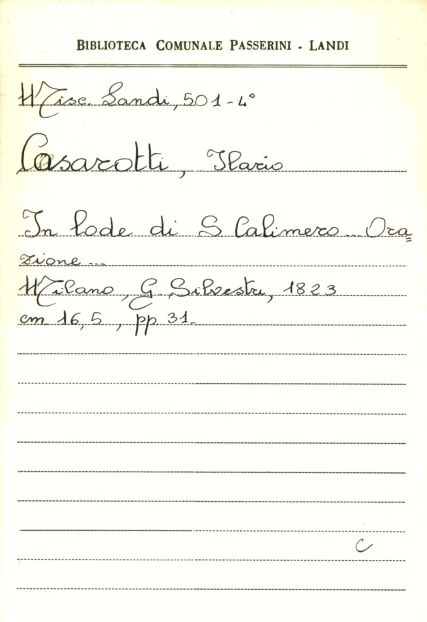 BIBLIOTECA COMUNALE PASSERINI - LANDI
Misc. Landi, 501-4°
Casarotti, Ilario
In lode di S Calimero... Ora=
zione...
Milano, G. Silvestri, 1823
cm 16,5, pp 31.
C